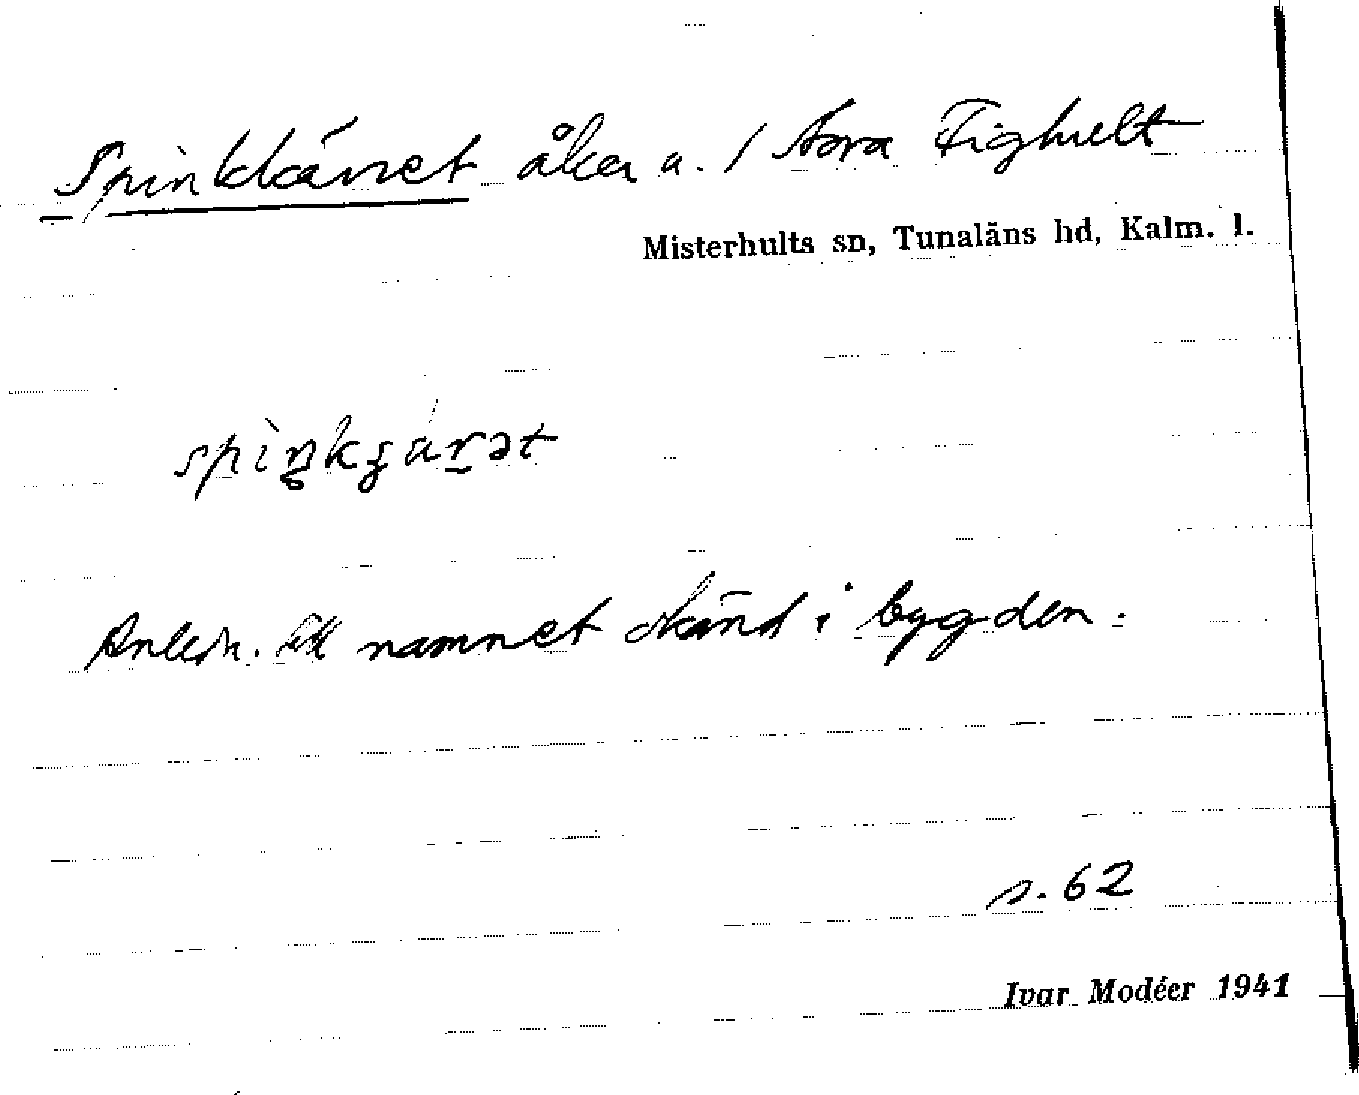 Spinkkärret åker u. / Stora Fighult
Misterhults sn, Tunaläns hd, Kalm. l.
Anledn. till namnet okänd i bygden.
s. 62
Ivar Modéer 1941